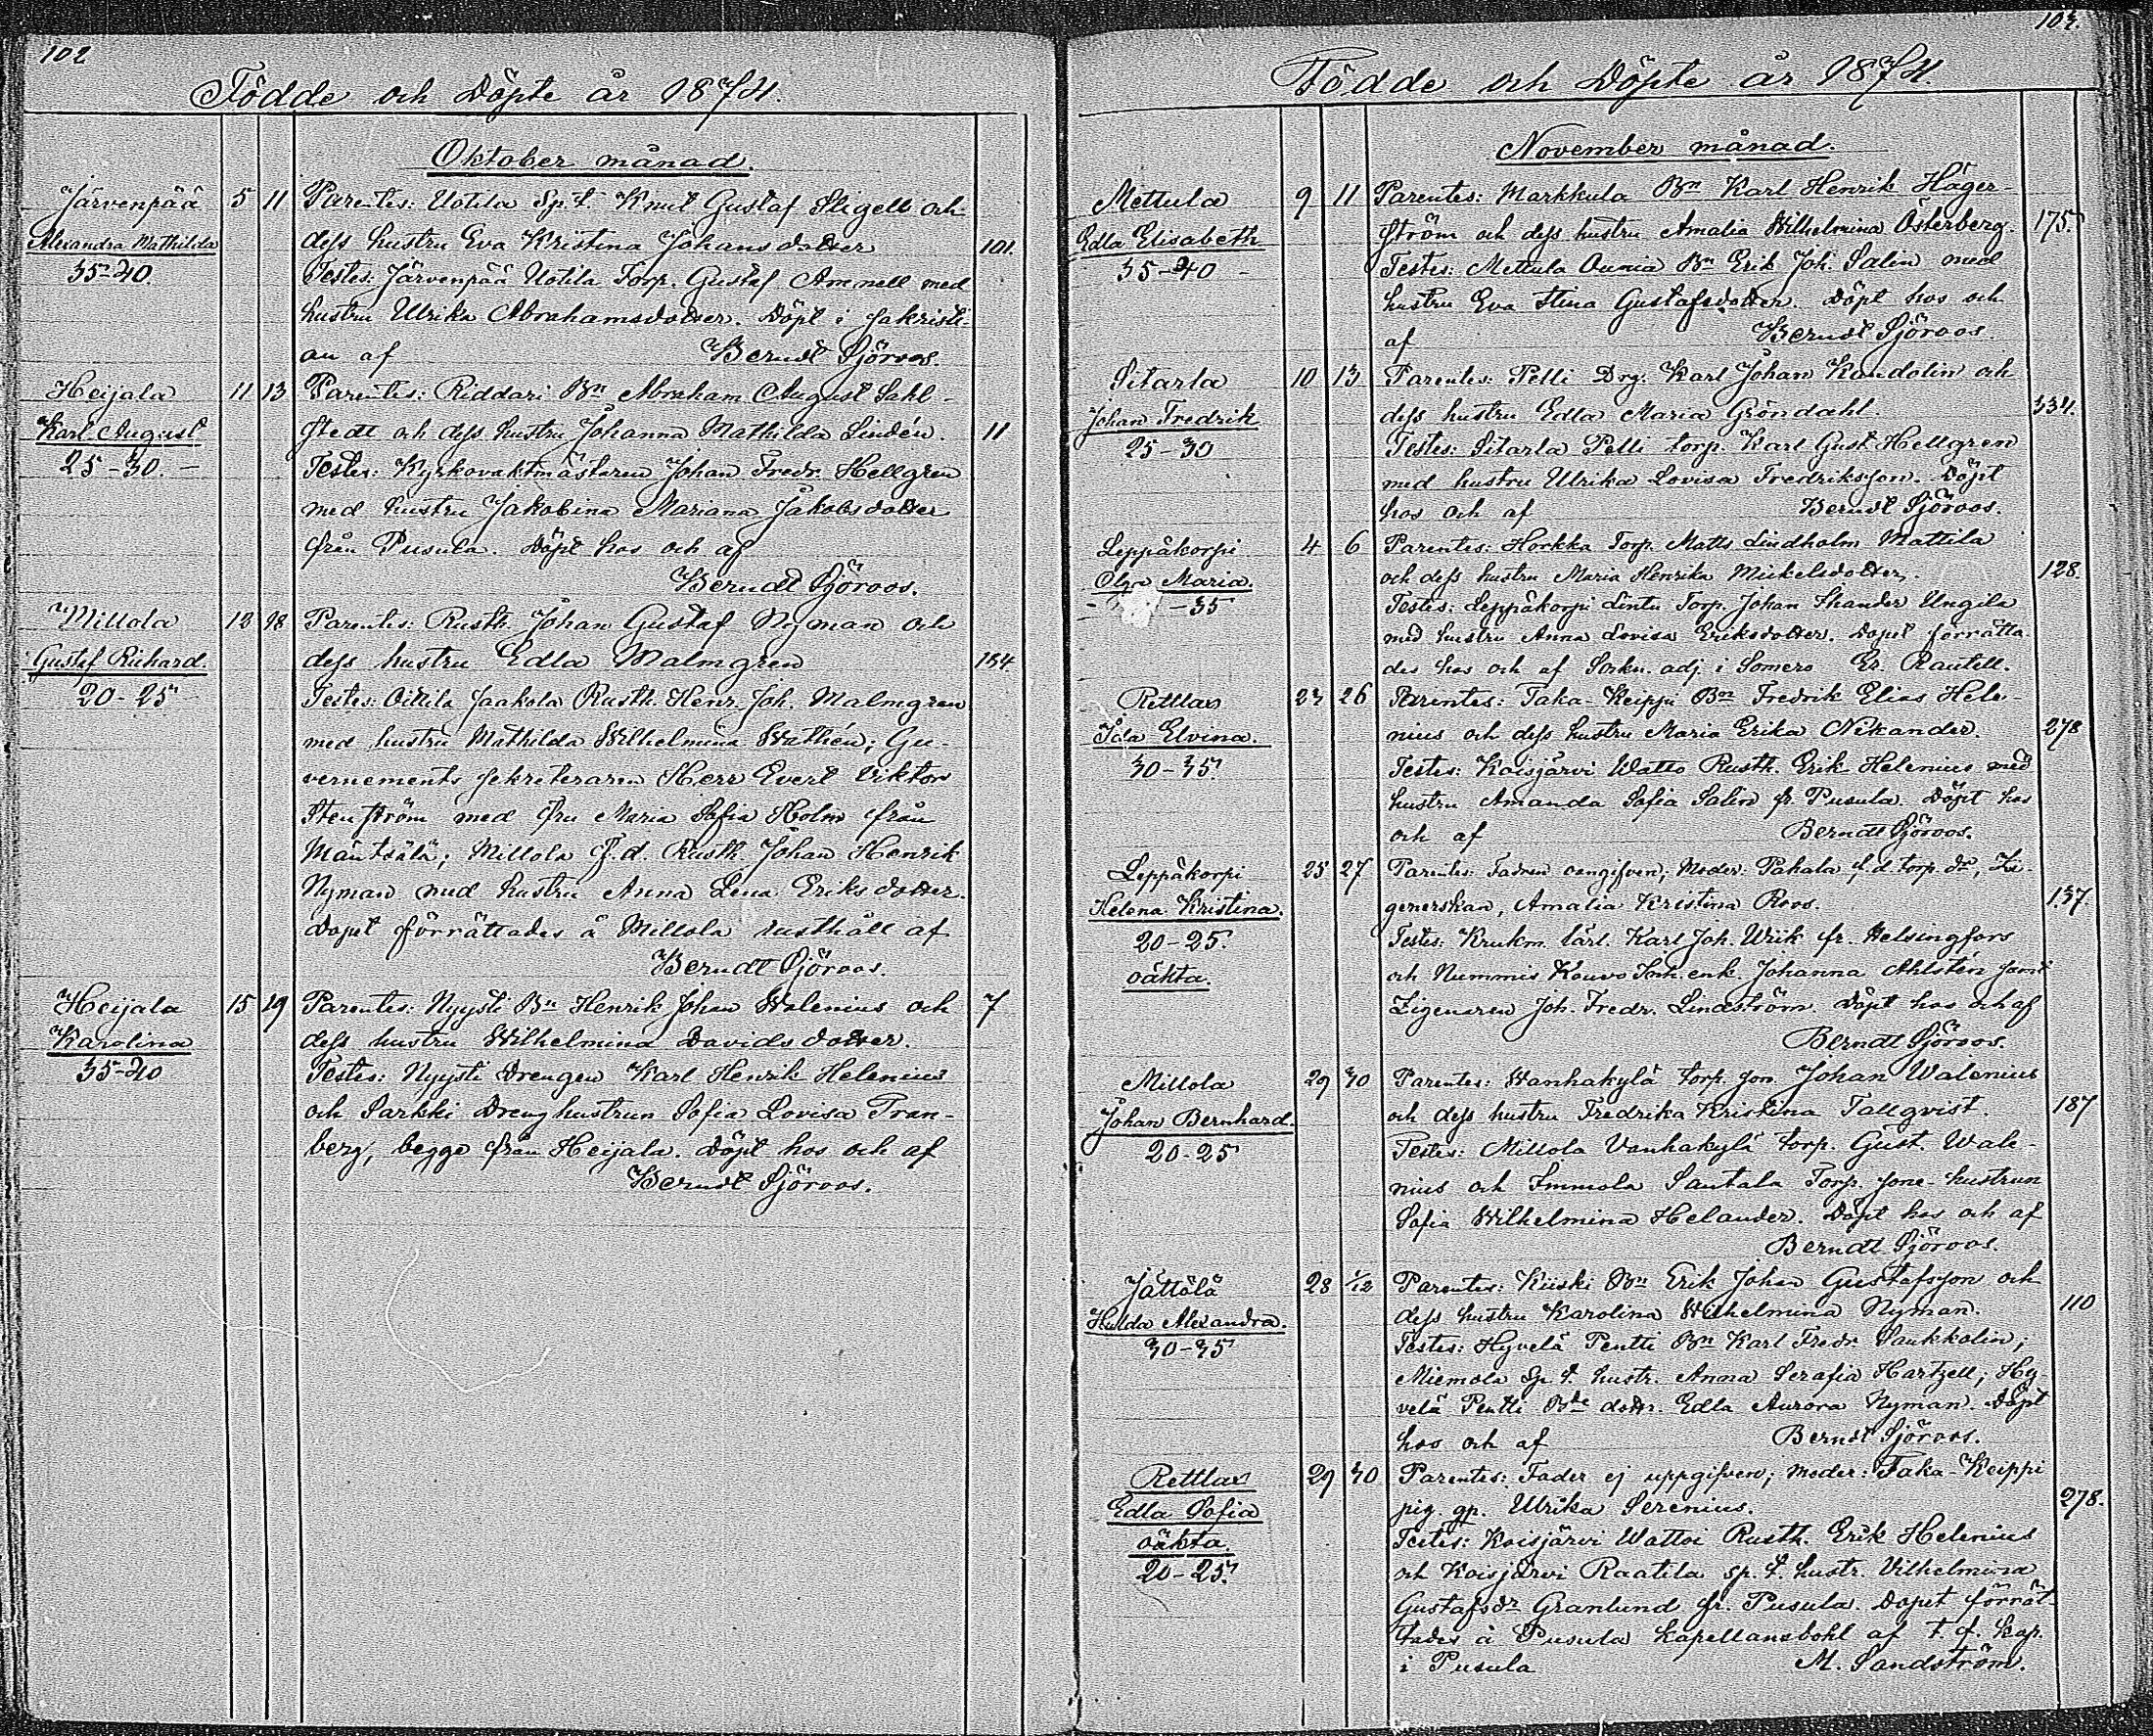 102
Födde och Döpte år 1874.
Oktober månad.
Järvenpää 5 11 Parentes: Uotila Sp.t. Knut Gustaf Stigell och
Alexandra Mathilda dess hustru Eva Kristina Johansdotter 101.
35-40. Testes: Järvenpää Uotila Torp. Gustaf Ammell med
hustru Ulrika Abrahamsdotter. Döpt i sakristi-
an af Berndt Sjöroos.
Heijala 11 13 Parentes: Riddari Bn Abraham August Sahl-
Karl August stedt och dess hustru Johanna Mathilda Lindén. 11
25-30. - Testes: Kyrkovaktmästaren Johan Fredr. Hellgren
med hustru Jakobina Mariana Jakobsdotter
från Pusula. Döpt hos och af
Berndt Sjöroos.
Millola 12 18 Parentes: Rusth. Johan Gustaf Nyman och
Gustaf Richard. dess hustru Edla Malmgren 184.
20-25 Testes: Oittila Jaakola Rusth. Henr. Joh. Malmgren
med hustru Mathilda Wilhelmina Wathén; Gu-
vernements sekreteraren Herr Evert Viktor
Stenström med fru Maria Sofia Holm från
Mäntsälä; Millola f.d. Rusth. Johan Henrik
Nyman med hustru Anna Lena Eriksdotter.
Dopet förrättades å Millola rusthåll af
Berndt Sjöroos.
Heijala 15 19 Parentes: Nyysti Bn Henrik Johan Walenius och 7
Karolina dess hustru Wilhelmina Davidsdotter.
35-40 Testes: Nyysti Drengen Karl Henrik Helenius
och Sarkki Drenghustrun Sofia Lovisa Tran-
berg, begge från Heijala. Döpt hos och af
Berndt Sjöroos.
103.
Födde och Döpte år 1874.
November månad.
Mettula 9 11 Parentes: Markkula Bn Karl Henrik Häger-
Edla Elisabeth ström och dess hustru Amalia Wilhelmina Österberg. 175.
35-40 - Testes: Mettula Ounia Bn Erik Joh. Salin med
hustru Eva Stina Gustafsdotter. Döpt hos och
af Berndt Sjöroos.
Sitarla 10 13 Parentes: Pelli Drg: Karl Johan Kandolin och
Johan Fredrik dess hustru Edla Maria Gröndahl. 334.
25-30 Testes: Sitarla Pelli torp. Karl Gust. Hellgren
med hustru Ulrika Lovisa Fredriksson. Döpt
hos och af Berndt Sjöroos.
Leppäkorpi 4 6 Parentes: Horkka Torp. Matts Lindholm Mattila
Olga Maria. och dess hustru Maria Henrika Mickelsdotter. 128.
-35 Testes: Leppäkorpi Lintu Torp. Johan Skander Ungila
med hustru Anna Lovisa Eriksdotter. Dopet förrätta-
des hos och af Sockn. adj. i Somero Er. Rautell.
Rettlax 23 26 Parentes: Taka-Keippi Bn Fredrik Elias Hele-
Ida Elvina. nius och dess hustru Maria Erika Nikander. 278
30-35 Testes: Koisjärvi Watto Rusth. Erik Helenius med
hustru Amanda Sofia Salin fr. Pusula. Döpt hos
och af Berndt Sjöroos.
Leppäkorpi 25 27 Parentes: Fadren oangifven; Moder: Pahala f.d. torp. dr, Zi-
Helena Kristina. generskan, Amalia Kristina Roos. 137.
20-25. Testes: Krukm. lärl. Karl Joh. Wiik fr. Helsingfors
oäkta. och Nummis Kouvo Inh. enk. Johanna Ahlstén samt
Zigenaren Joh. Fredr. Lindström. Döpt hos och af
Berndt Sjöroos.
Millola 29 30 Parentes: Wanhakylä torp. son. Johan Walenius
Johan Bernhard. och dess hustru Fredrika Kristina Tallqvist. 187
20-25 Testes: Millola Vanhakylä torp. Gust. Wale-
nius och Immola Santala Torp. sone-hustrun
Sofia Wilhelmina Helander. Döpt hos och af
Berndt Sjöroos.
Jättölä 28 1/12 Parentes: Kiiski Bn Erik Johan Gustafsson och
Hulda Alexandra. dess hustru Karolina Wilhelmina Nyman. 110
30-35 Testes: Hyvelä Pentti Bn Karl Fredr. Saukkolin;
Miemola Sp. t. hustr. Anna Serafia Hartzell; Hy-
velä Pentti Bde dottr. Edla Aurora Nyman. Döpt
hos och af Berndt Sjöroos.
Rettlax 29 30 Parentes: Fader ej uppgifven; moder: Taka-Keippi
Edla Sofia pig. gp. Ulrika Serenius. 278.
oäkta. Testes: Koisjärvi Wattoi Rusth. Erik Helenius
20-25. och Koisjärvi Raatila sp. t. hustr. Vilhelmina
Gustafsdr Granlund fr. Pusula. Dopet förrät-
tades å Pusula kapellansbohl af t. f. kap.
i Pusula M. Sandström.